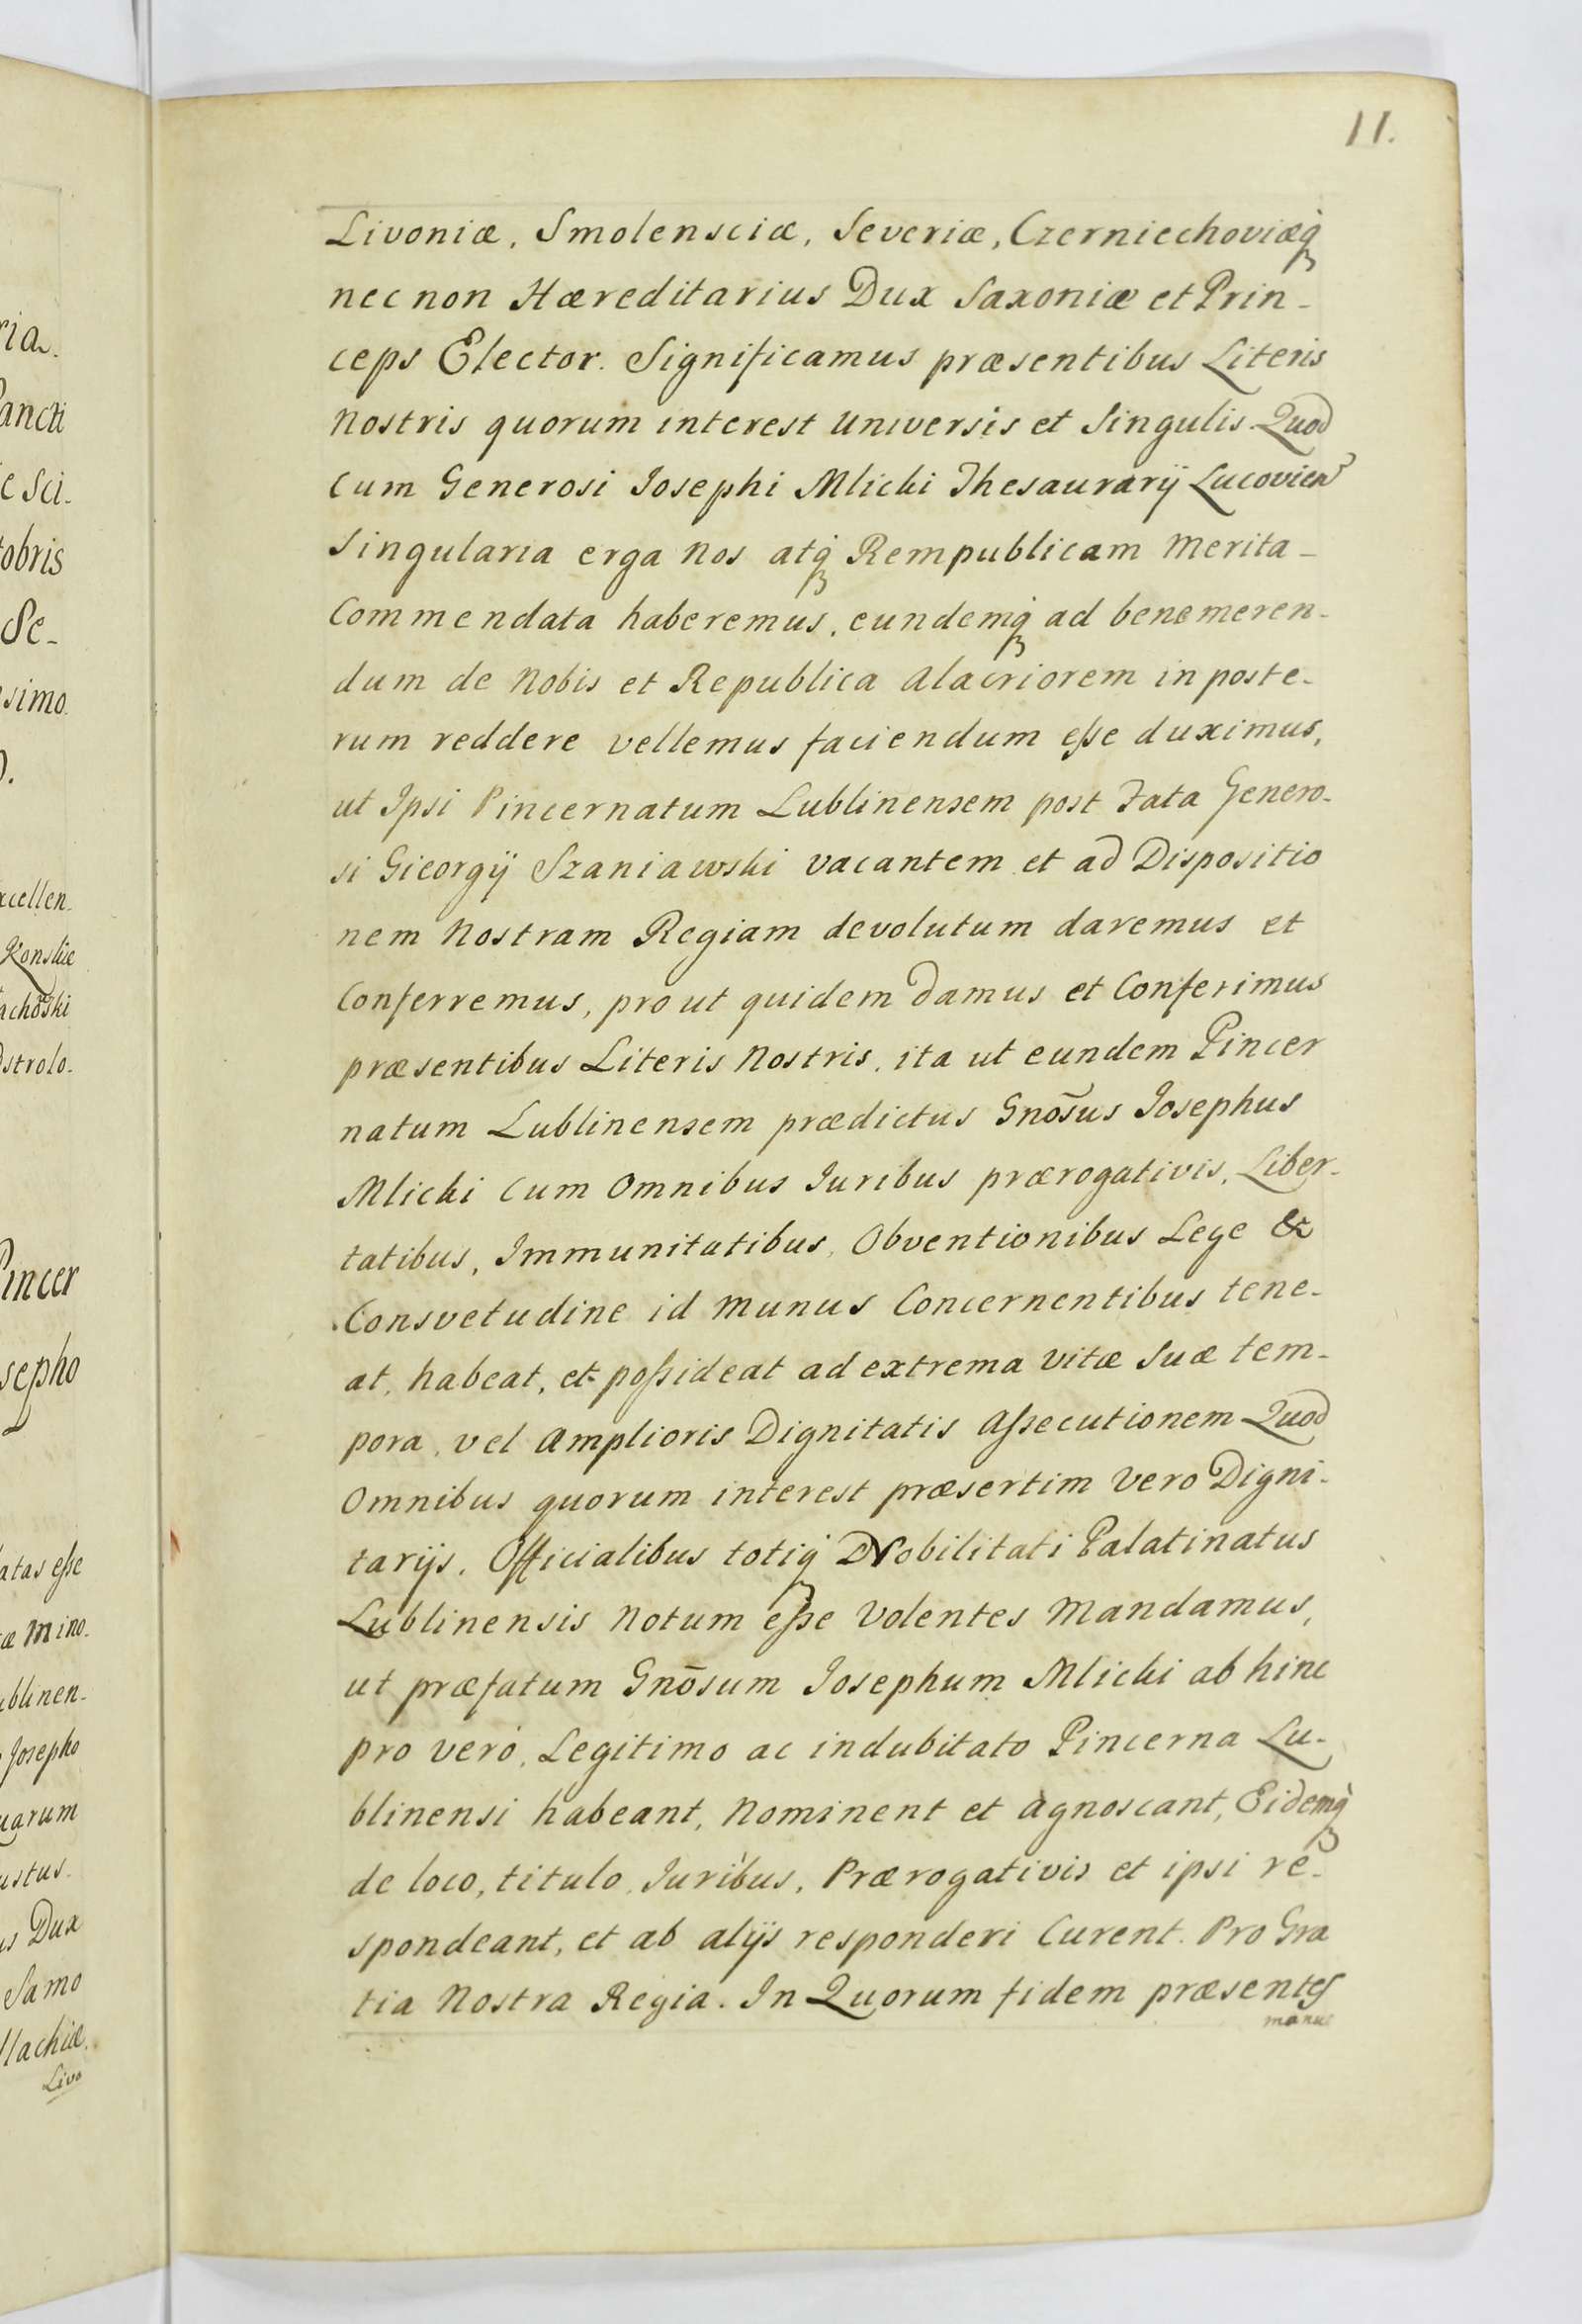 11.
Livoniæ, Smolensciæ, Severiæ, Czerniechoviæq́
nec non Hæreditarius Dux Saxoniæ et Prin-
ceps Elector. Significamus præsentibus Literis
Nostris quorum interest Universis et Singulis. Quod
Cum Generosi Josephi Mlicki Thesaurarÿ Lucovien
Singularia erga Nos atq́ Rempublicam Merita-
Commendata haberemus, eundemq́ ad benemeren-
dum de Nobis et Republica Alacriorem in poste-
rum reddere vellemus faciendum eſse duximus,
ut Ipsi Pincernatum Lublinensem post Fata Genero-
si Gieorgÿ Szaniawski vacantem et ad Dispositio
nem Nostram Regiam devolutum daremus et
Conferremus, pro ut quidem damus et Conferimus
præsentibus Literis Nostris, ita ut eundem Pincer
natum Lublinensem prædictus Gnōsus Josephus
Mlicki Cum Omnibus Juribus prærogativis, Liber-
tatibus, Immunitatibus, Obventionibus Lege &
Consvetudine id Munus Concernentibus tene-
at, habeat, et poſsideat ad extrema vitæ Suæ tem-
pora, vel Amplioris Dignitatis Aſsecutionem Quod
Omnibus quorum interest præsertim Vero Digni-
tarÿs, Officialibus totiq́ Nobilitati Palatinatus
Lublinensis Notum eſse Volentes Mandamus,
ut præfatum Gnōsum Josephum Mlicki ab hinc
pro vero, Legitimo ac indubitato Pincerna Lu-
blinensi habeant, Nominent et agnoscant, Eidemq́
de loco, titulo, Juribus, Prærogativis et ipsi re-
spondeant, et ab alÿs responderi Curent. Pro Gra
tia Nostra Regia. In Quorum fidem præsentes
manu
ria.
Sancti
e Sci-
tobris
Se-
simo.
xcellen-
Konskie
achoski
ostrolo-
Pincer
sepho
atas eſse
æ Mino-
ublinen-
Josepho
uarum
ustus.
us Dux
Samo
llachiæ.
Livo